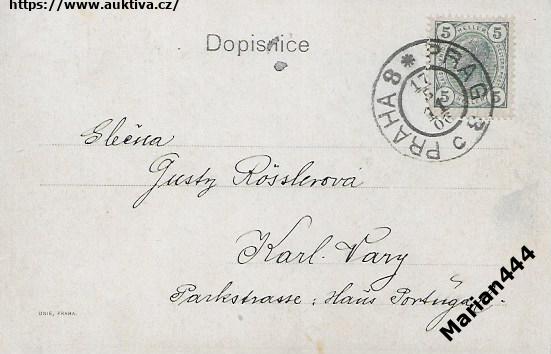 https://www.auktiva.cz/
Dopisnice
5 HELLER 5
5 5
PRAG 8 c PRAHA 8 *
Slečna
Gusty Rösslerová
Karl. Vary
Parkstrasse: Haus Portugal.
UNIE, PRAHA.
Marian444